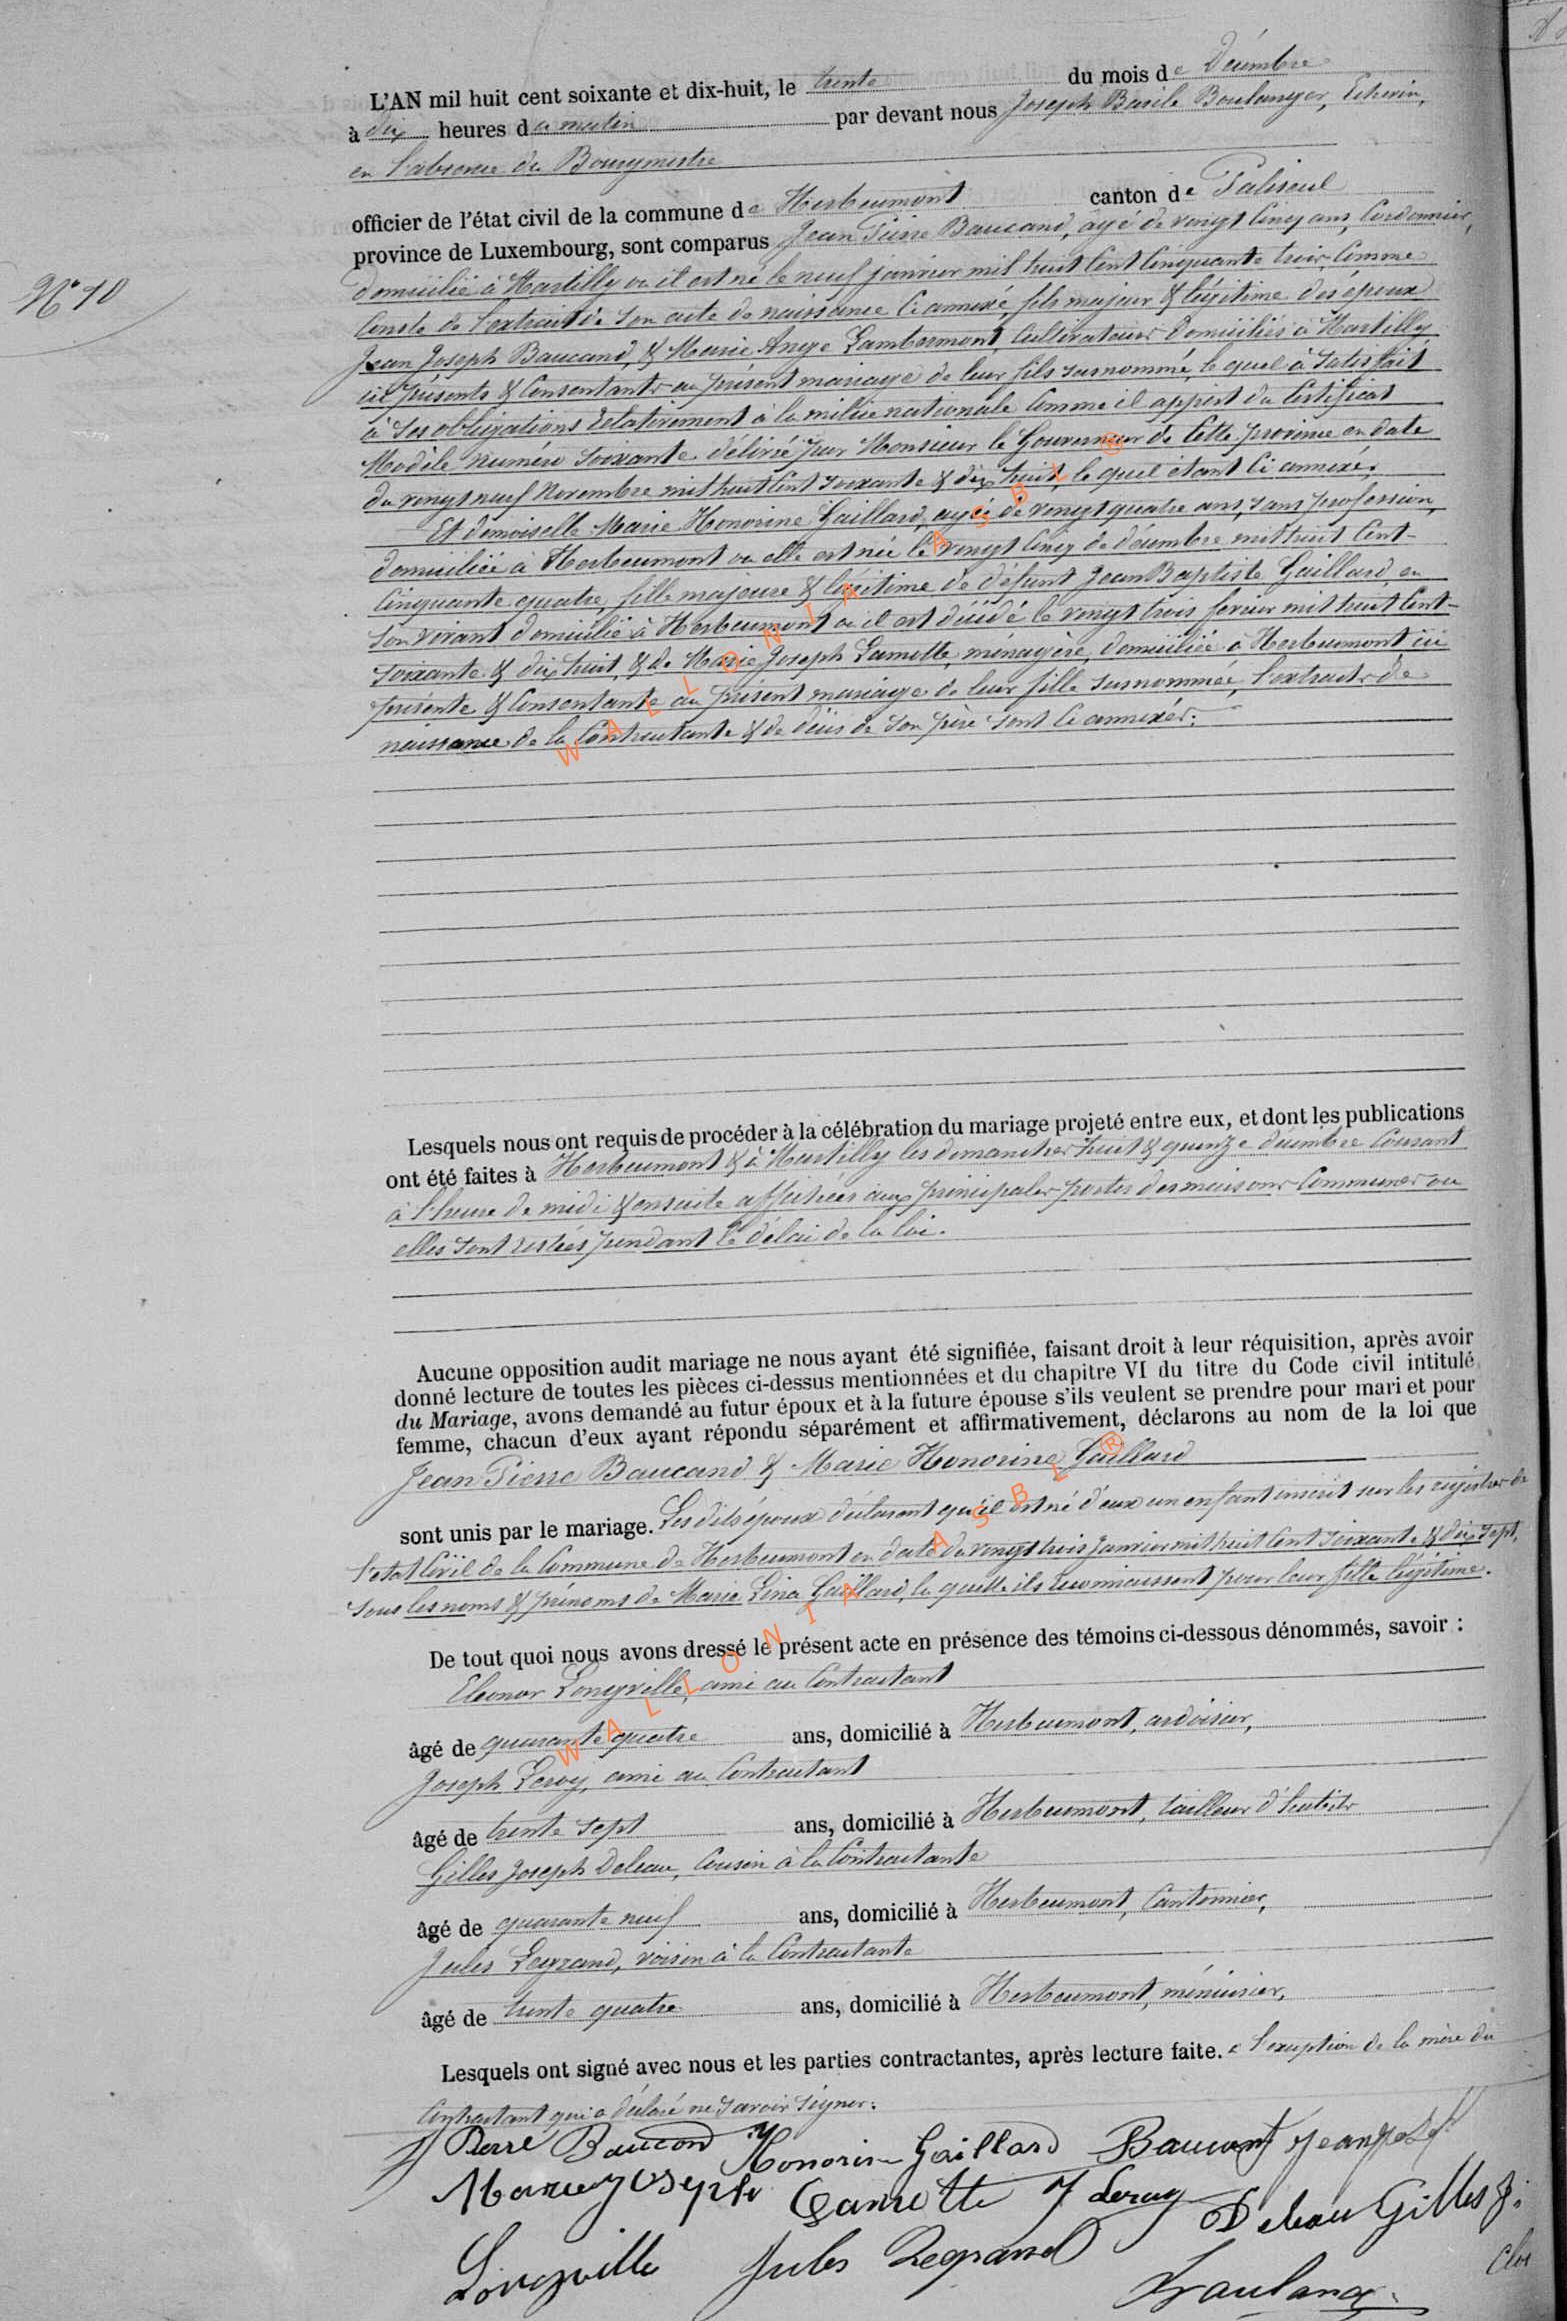 L'AN mil huit cent soixante et dix-huit, le trente du mois de Décembre
à dix heures du matin par devant nous Joseph Basile Boulanger, Echevin,
en l'absence du Bourgmestre
officier de l'état civil de la commune de Herbeumont canton de Paliseul
province de Luxembourg, sont comparus Jean Pierre Baucand, agé de vingt cinq ans, Cordonnier,
N° 10
domicilié à Martilly ou il est né le neuf janvier mil huit Cent Cinquante trois, Comme
Conste de l'extrait de son acte de naissance Ci annexé, fils majeur & légitime des époux
Jean Joseph Baucand, & Marie Ange Lambermont, Cultivateurs domiciliés à Martilly
ici présents & Consentants au présent mariage de leur fils susnommé, le quel à satisfait
à ses obligations relativement à la milice nationale Comme il appert du Certificat
Modèle numéro soixante délivré par Monsieur le Gouverneur de Cette province en date
du vingt neuf Novembre mil huit Cent soixante & dix huit, le quel étant Ci annexé.
Et demoiselle Marie Honorine Gaillard, agée de vingt quatre ans, sans profession,
domiciliée à Herbeumont ou elle est née le vingt Cinq de décembre mil huit Cent-
Cinquante quatre, fille majeure & légitime de défunt Jean Baptiste Gaillard, en
son vivant domicilié à Herbeumont ou il est décédé le vingt trois fevrier mil huit Cent-
soixante & dix huit, & de Marie Joseph Lamotte, ménagère, domiciliée à Herbeumont, ici
présente & Consentante au présent mariage de leur fille susnommée, l'extrait de
naissance de la Contractante & de décès de son père sont Ci annexés.
WALLONIA ASBL ®
Lesquels nous ont requis de procéder à la célébration du mariage projeté entre eux, et dont les publications
ont été faites à Herbeumont & à Martilly les dimanches huit & quinze décembre Courant
à l'heure de midi & ensuite affichées aux principales portes des maisons Communes ou
elles sont restées pendant le délai de la loi.
Aucune opposition audit mariage ne nous ayant été signifiée, faisant droit à leur réquisition, après avoir
donné lecture de toutes les pièces ci-dessus mentionnées et du chapitre VI du titre du Code civil intitulé
du Mariage, avons demandé au futur époux et à la future épouse s'ils veulent se prendre pour mari et pour
femme, chacun d'eux ayant répondu séparément et affirmativement, déclarons au nom de la loi que
Jean Pierre Baucand & Marie Honorine Gaillard
sont unis par le mariage. Les dits époux déclarent qu'il est né d'eux un enfant inscrit sur les registres de
l'état Civil de la Commune de Herbeumont en date du vingt trois Janvier mil huit Cent soixante & dix sept,
sous les noms & prénoms de Marie Lina Gaillard, la quelle ils reconnaissent pour leur fille légitime.
De tout quoi nous avons dressé le présent acte en présence des témoins ci-dessous dénommés, savoir :
Eleonor Longville, ami au Contractant
âgé de quarante quatre ans, domicilié à Herbeumont, ardoisier,
Joseph Leroy, ami au Contractant
âgé de trente sept ans, domicilié à Herbeumont, tailleur d'habits
Gilles Joseph Deleau, Cousin à la Contractante
âgé de quarante neuf ans, domicilié à Herbeumont, Cantonnier,
Jules Legrand, voisin à la Contractante
âgé de trente quatre ans, domicilié à Herbeumont, ménuisier,
Lesquels ont signé avec nous et les parties contractantes, après lecture faite. à l'exception de la mère du
Contractant qui a déclaré ne savoir signer.
Pierre Baucand Honorine Gaillard Baucant Jean
Marie Joseph Lamotte J Leroy Deleau Gilles J.
Longville Jules Legrand
WALLONIA ASBL ®